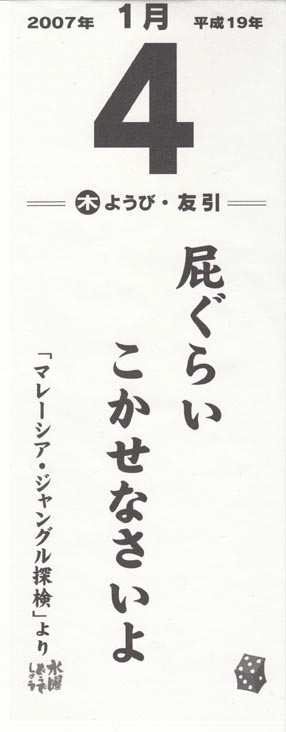 2007年 1月 平成19年
4
木ようび・友引
屁ぐらい
こかせなさいよ
「マレーシア・ジャングル探検」より
水曜
どうで
しょう